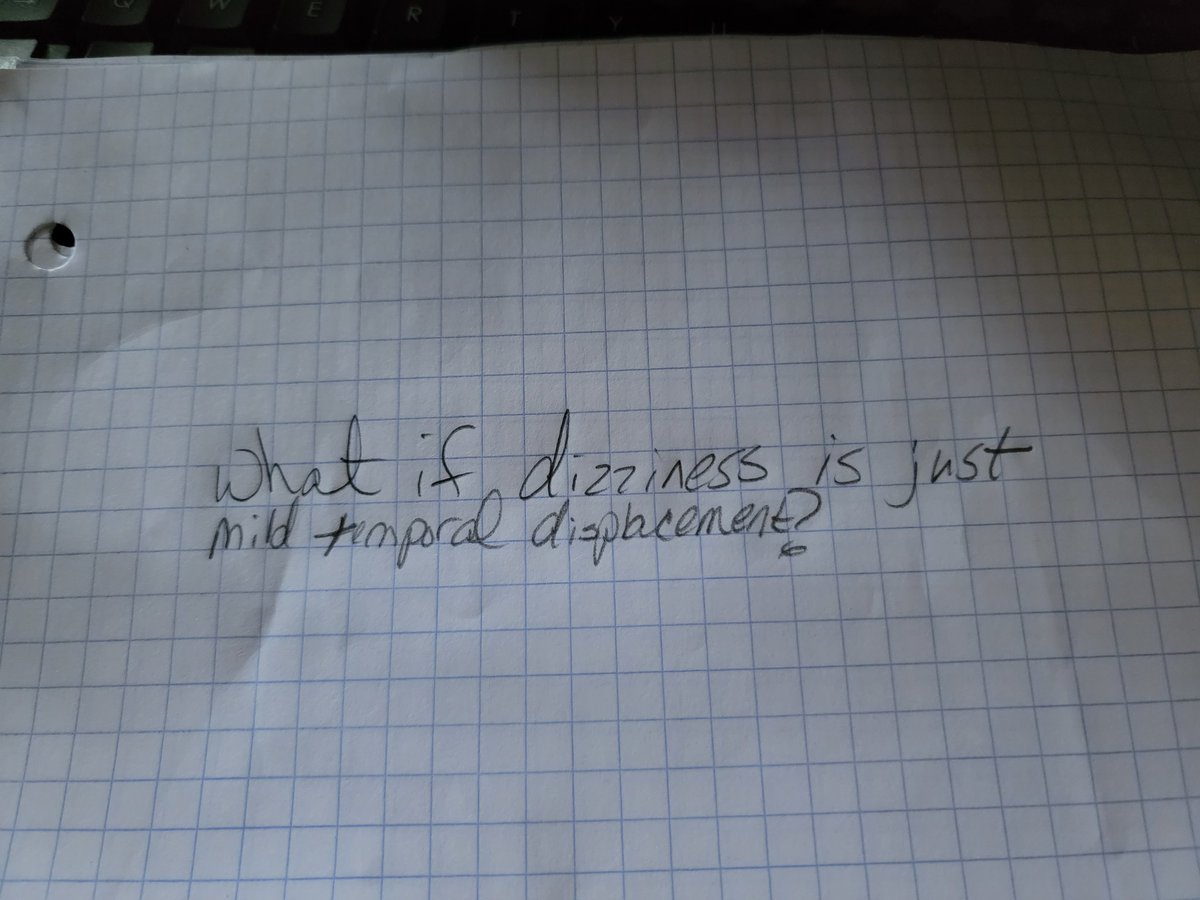 Q W E R T Y U
What if dizziness is just
mild temporal displacement?